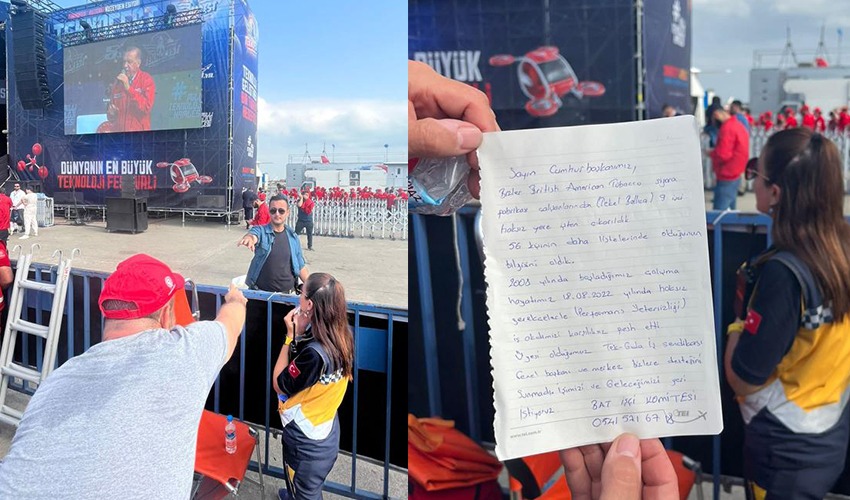 TEKNOFEST
DÜNYANIN EN BÜYÜK
TEKNOLOJİ FESTİVALİ
BÜYÜK
Sayın Cumhurbaşkanımız,
Bizler British American Tobacco sigara
fabrikası çalışanlarından (Tekel Ballıca) 9 kişi
haksız yere işten çıkarıldık
56 kişinin daha listelerinde olduğunun
bilgisini aldık.
2008 yılında başladığımız çalışma
hayatımız 18.08.2022 yılında haksız
gerekçelerle (Performans Yetersizliği)
iş akdimizi karşılıksız fesh etti.
Üyesi olduğumuz Tek-Gıda İş sendikası
Genel başkanı ve merkez bizlere desteğini
Sunmadı İşimizi ve Geleceğimizi geri
istiyoruz
BAT İŞÇİ KOMİTESİ
0541 521 67